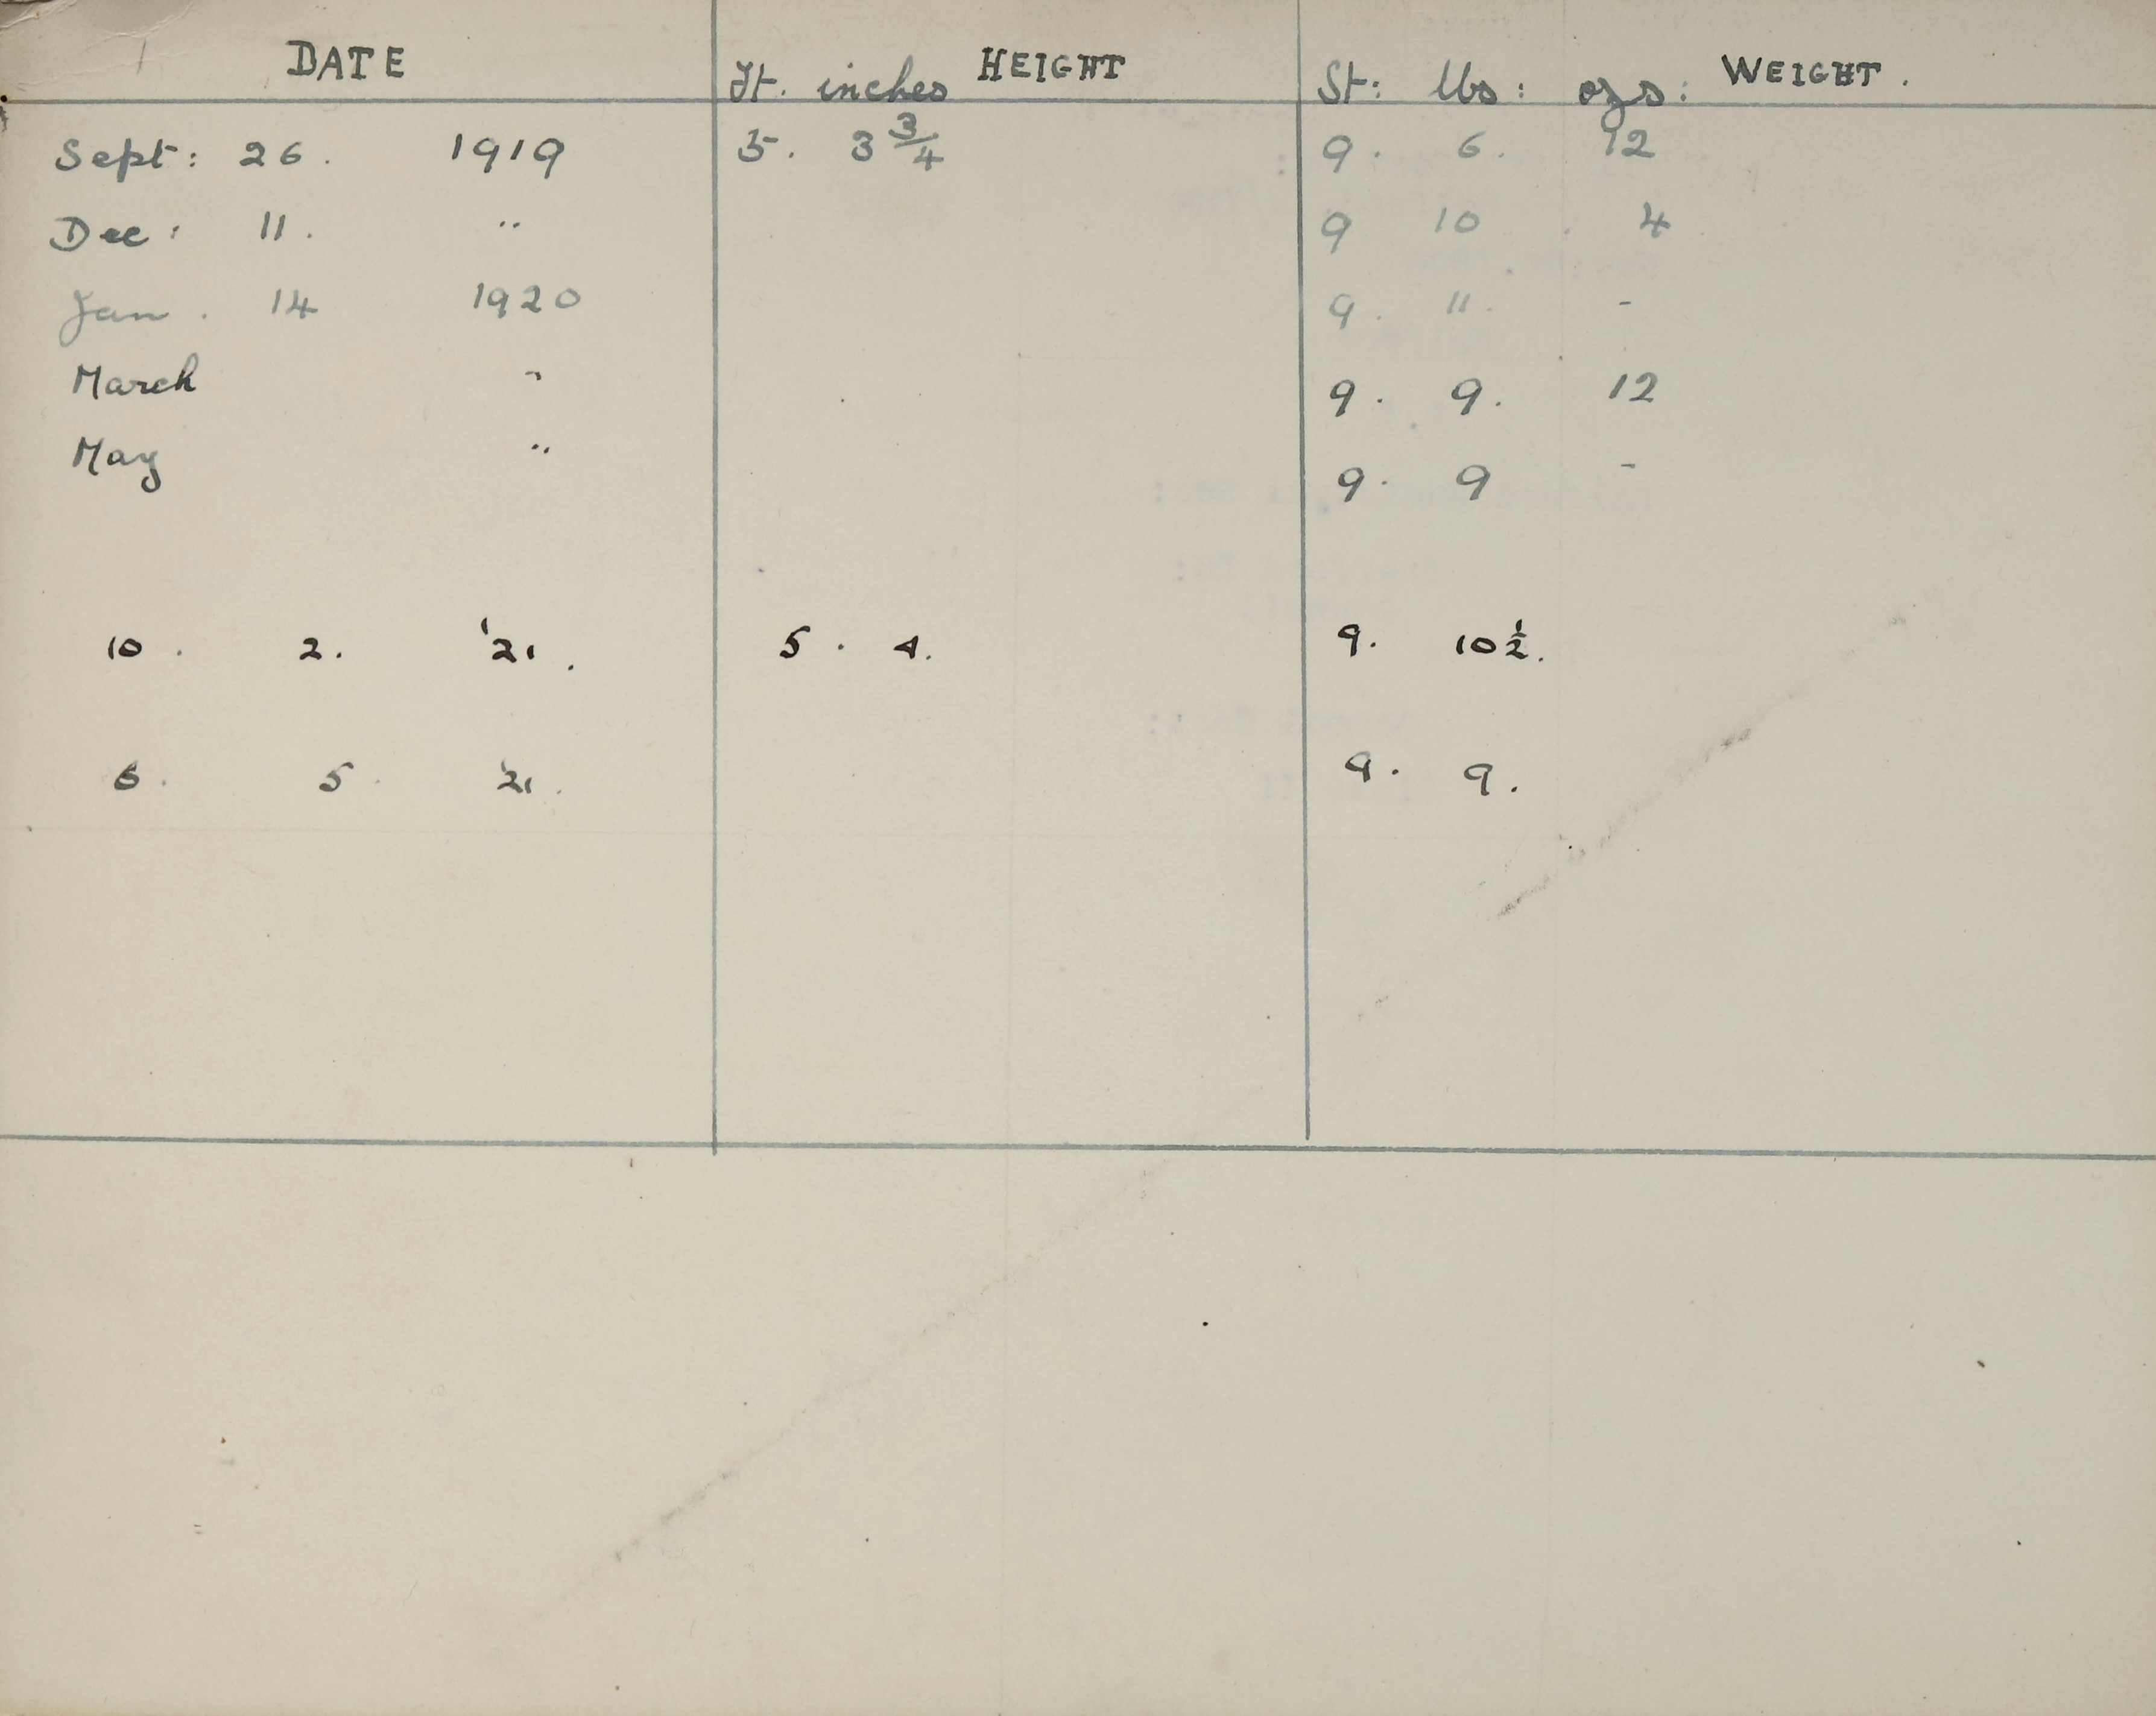 DATE Ft. inches HEIGHT St: lbs: ozs: WEIGHT.
Sept: 26. 1919 5. 3 3/4 9. 6. 12
Dec: 11. " 9 10 . 4
Jan. 14 1920 9. 11. -
March " 9. 9. 12
May " 9. 9 -
10. 2. '21. 5. 4. 9. 10½.
6. 5. '21. 9. 9.